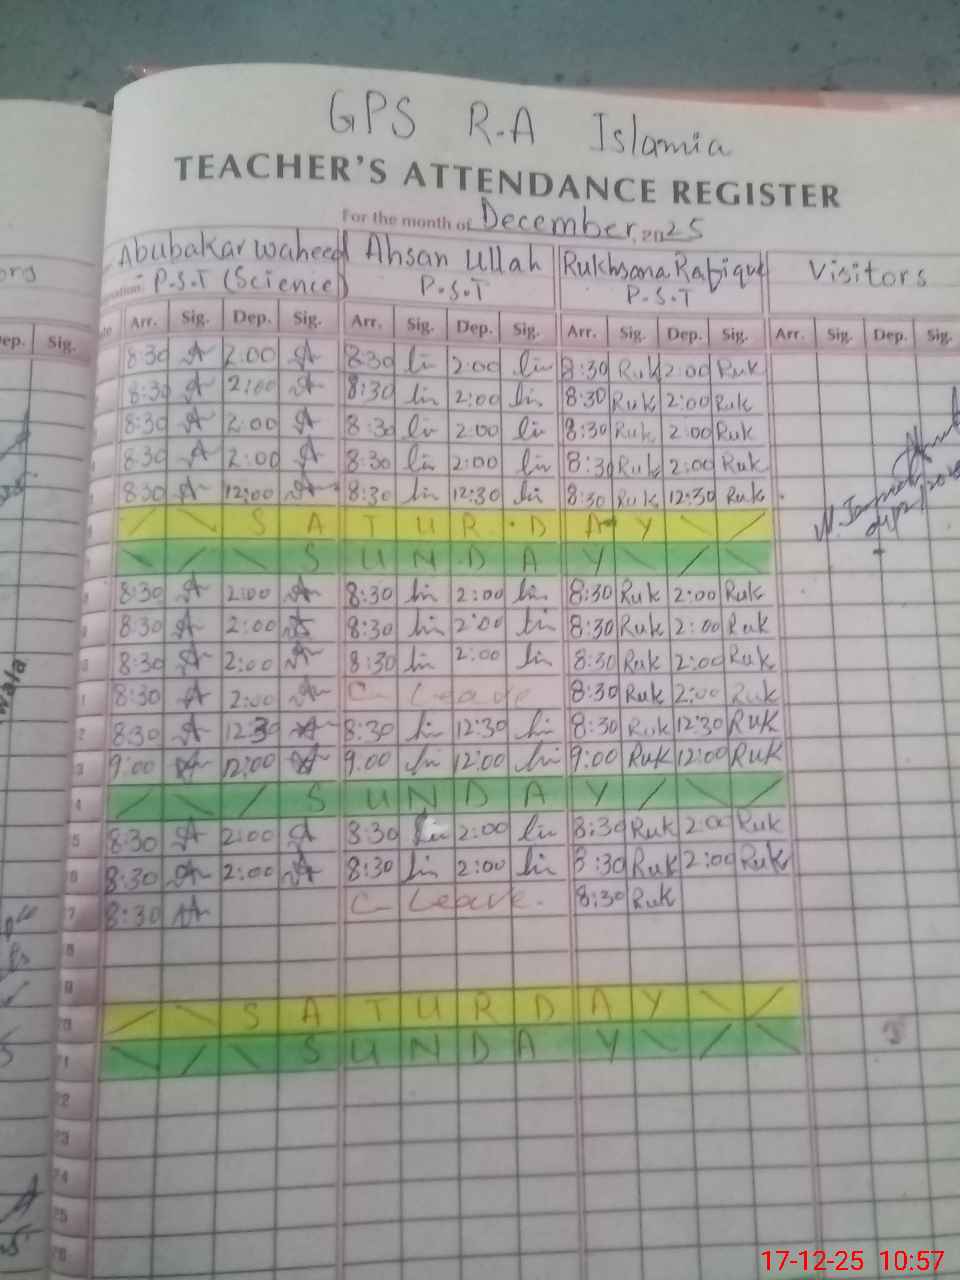 GPS R.A Islamia
TEACHER'S ATTENDANCE REGISTER
For the month of December, 2025
Abubakar Waheed Ahsan Ullah Rukhsana Rafique Visitors
P.S.T (Science) P.S.T P.S.T
Dep. Sig. Arr. Sig. Dep. Sig. Arr. Sig. Dep. Sig. Arr. Sig. Dep. Sig. Arr. Sig. Dep. Sig.
8:30 2:00 8:30 2:00 8:30 Ruk 2:00 Ruk
8:30 2:00 8:30 2:00 8:30 Ruk 2:00 Ruk
8:30 2:00 8:30 2:00 8:30 Ruk 2:00 Ruk
8:30 2:00 8:30 2:00 8:30 Ruk 2:00 Ruk
8:30 12:00 8:30 12:30 8:30 Ruk 12:30 Ruk
SATURDAY
SUNDAY
8:30 2:00 8:30 2:00 8:30 Ruk 2:00 Ruk
8:30 2:00 8:30 2:00 8:30 Ruk 2:00 Ruk
8:30 2:00 8:30 2:00 8:30 Ruk 2:00 Ruk
8:30 2:00 C- Leave 8:30 Ruk 2:00 Ruk
2 8:30 12:30 8:30 12:30 8:30 Ruk 12:30 Ruk
3 9:00 12:00 9:00 12:00 9:00 Ruk 12:00 Ruk
4 SUNDAY
5 8:30 2:00 8:30 2:00 8:30 Ruk 2:00 Ruk
6 8:30 2:00 8:30 2:00 8:30 Ruk 2:00 Ruk
7 8:30 C- Leave. 8:30 Ruk
8
9
20 SATURDAY
21 SUNDAY
22
23
24
25
26
17-12-25 10:57